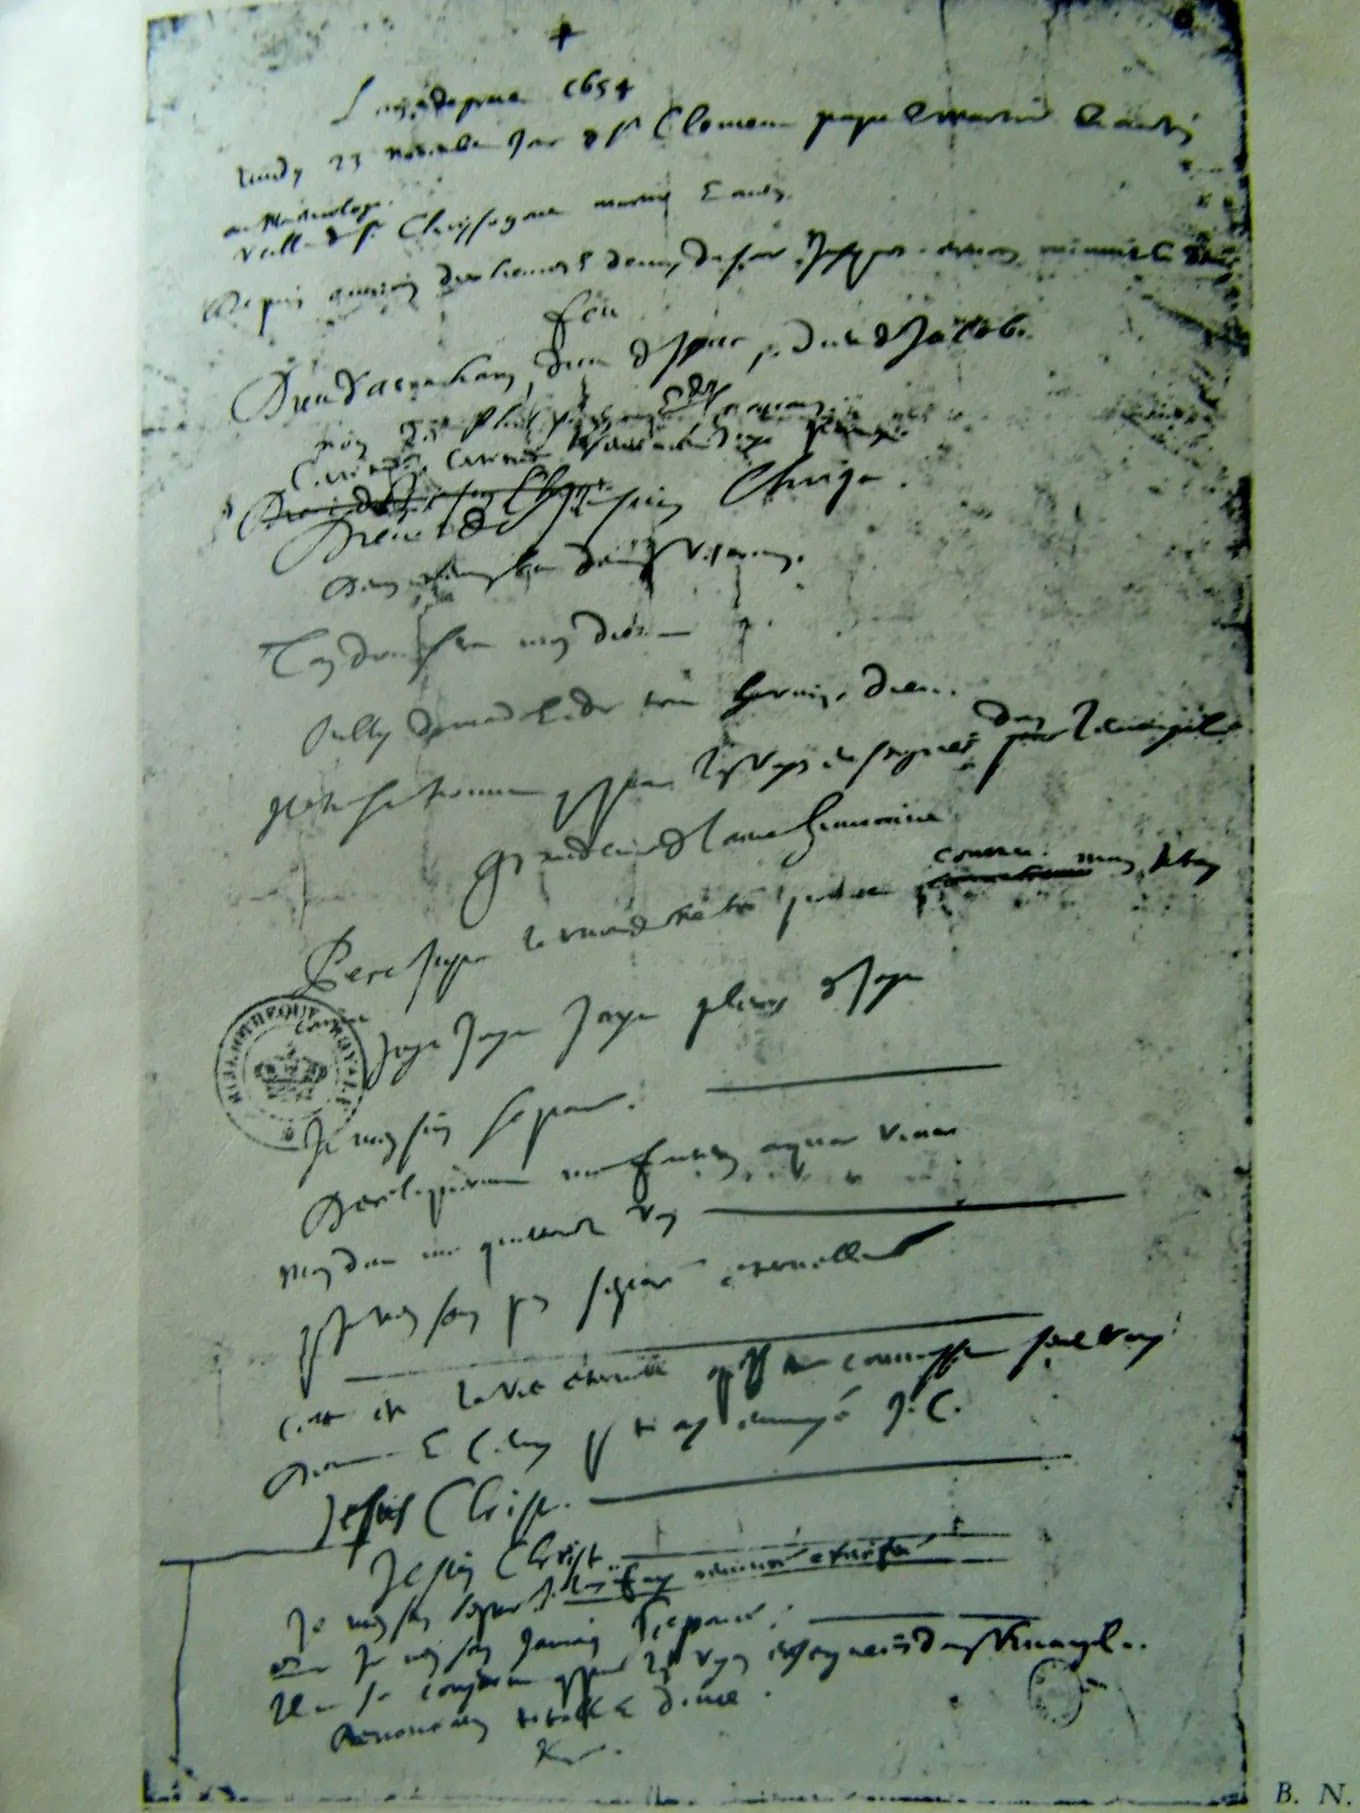 L'an de grace 1654
Lundy 23 novembre jour de St Clement pape et martir et autres
au Martirologe.
veille de St Chrysogone martir et autres.
Depuis environ dix heures et demy du soir jusques environ minuit et demy
feu
Dieu d'Abraham, Dieu d'Isaac, Dieu de Jacob.
non des philosophes et des sçavans.
Certitude, certitude sentiment joye paix.
Dieu de Jesus Christ.
Deum meum et Deum vestrum.
Ton Dieu sera mon Dieu
oubly du monde et de tout hormis Dieu.
Il ne se trouve que par les voyes enseignées dans l'Evangile
Grandeur de l'ame humaine.
Pere juste le monde ne t'a point connu. mais je t'ay
connu
Joye Joye Joye pleurs de joye
Je m'en suis separé.
Dereliquerunt me fontem aquae vivae
mon Dieu me quitterez vous
que je n'en sois pas separé eternellement
cette est la vie eternelle qu'ils te connoissent seul vray
Dieu et celuy que tu as envoyé J.C.
Jesus Christ.
Jesus Christ
Je m'en suis separé. je l'ay fuy renoncé crucifié
que je n'en sois jamais separé.
Il ne se conserve que par les voyes enseignées dans l'Evangile.
Renonciation totale et douce.
&c.
BIBLIOTHEQUE ROYALE
B. N.